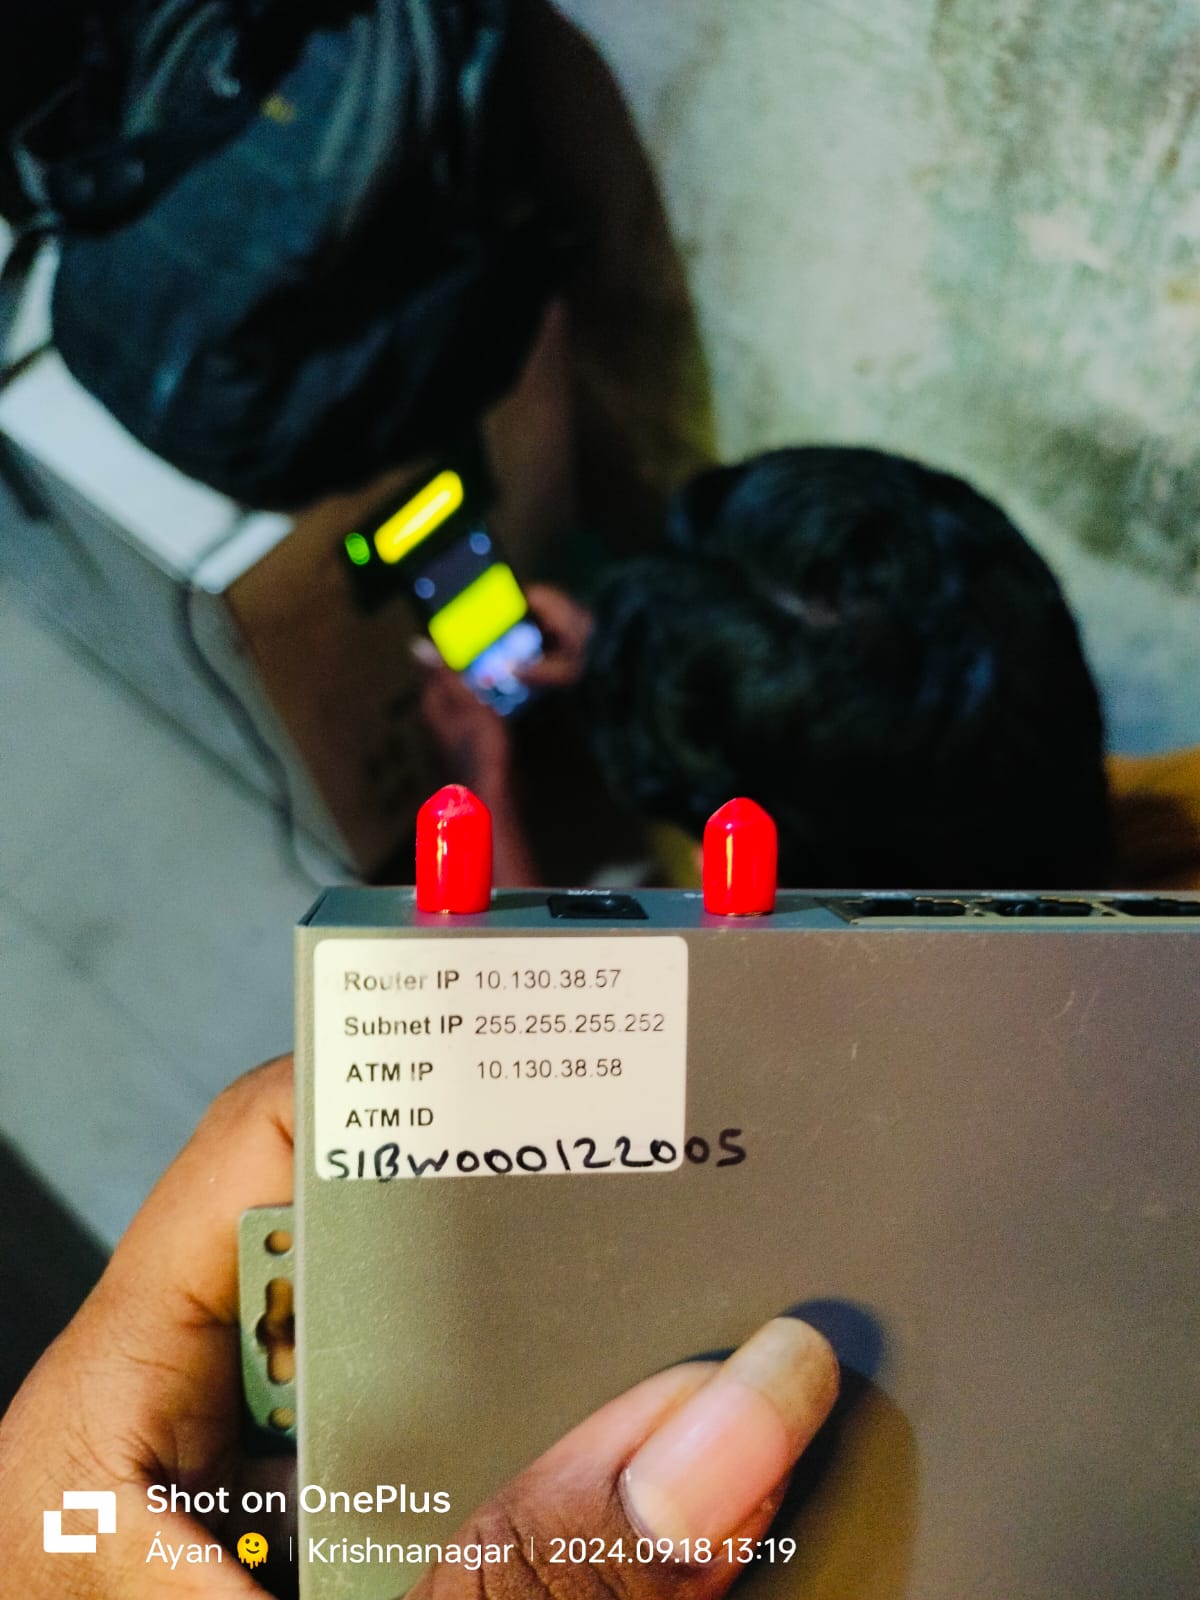 Router IP 10.130.38.57
Subnet IP 255.255.255.252
ATM IP 10.130.38.58
ATM ID
S1BW000122005
Shot on OnePlus
Áyan 🫠 | Krishnanagar | 2024.09.18 13:19